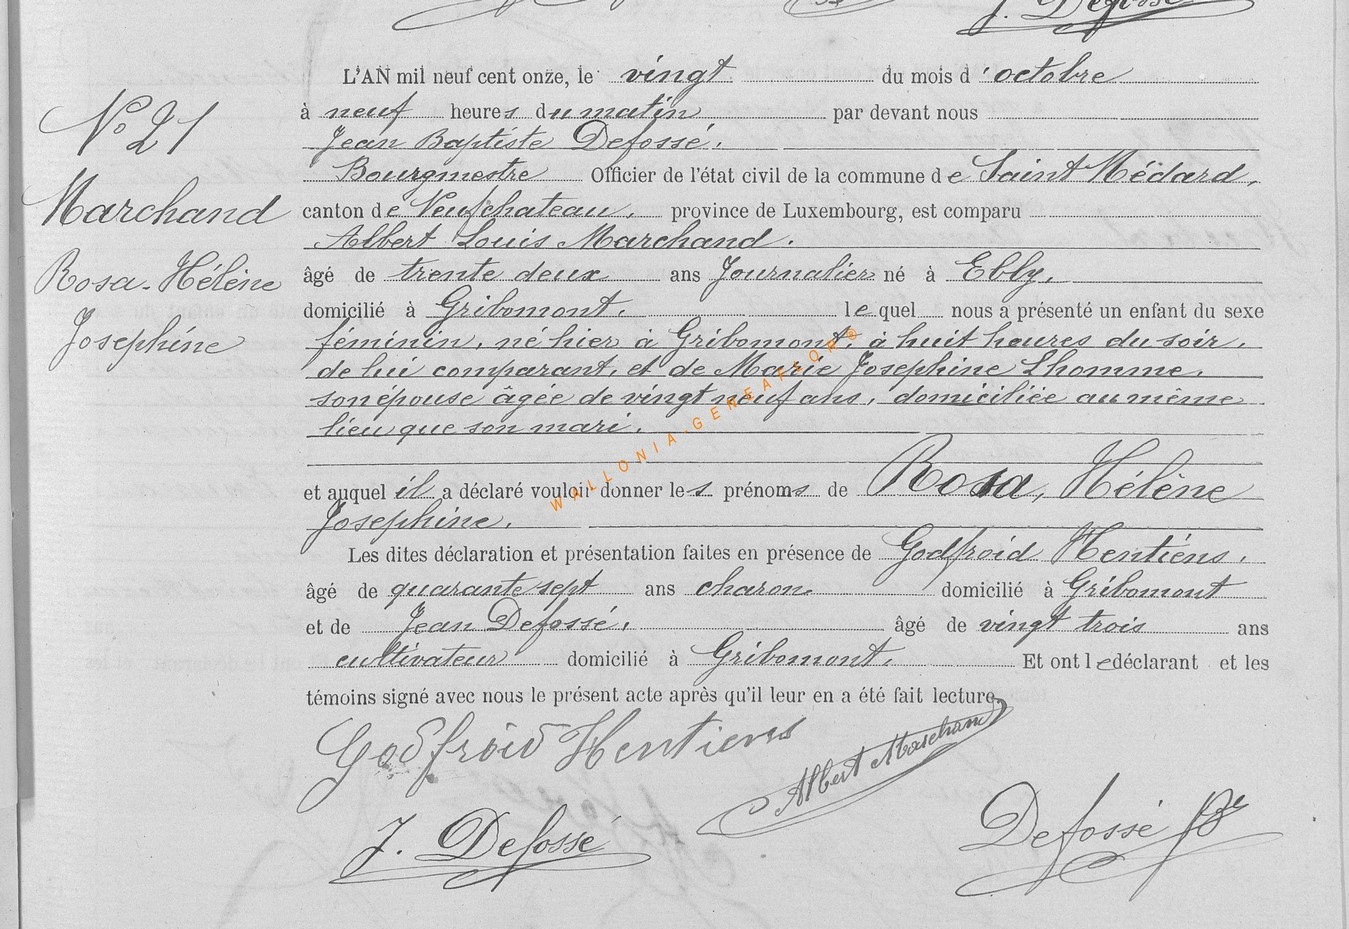 J. Defossé
L'AN mil neuf cent onze, le vingt du mois d'octobre
à neuf heures du matin par devant nous
Jean Baptiste Defossé.
Bourgmestre Officier de l'état civil de la commune de Saint Médard,
canton de Neufchateau, province de Luxembourg, est comparu
Albert Louis Marchand.
âgé de trente deux ans Journalier né à Ebly,
domicilié à Gribomont. lequel nous a présenté un enfant du sexe
féminin, né hier à Gribomont, à huit heures du soir,
de lui comparant, et de Marie Josephine Lhomme,
son épouse âgée de vingt neuf ans, domiciliée au même
lieu que son mari.
et auquel il a déclaré vouloir donner les prénoms de Rosa, Hélène
Josephine.
Les dites déclaration et présentation faites en présence de Godfroid Hentiéns,
âgé de quarante sept ans charon domicilié à Gribomont
et de Jean Defossé, âgé de vingt trois ans
cultivateur domicilié à Gribomont. Et ont le déclarant et les
témoins signé avec nous le présent acte après qu'il leur en a été fait lecture.
Godfroid Hentiens
Albert Marchand
J. Defossé
Defossé JB
No 21
Marchand
Rosa-Hélène
Josephine
WALLONIA-GENEAFLORO